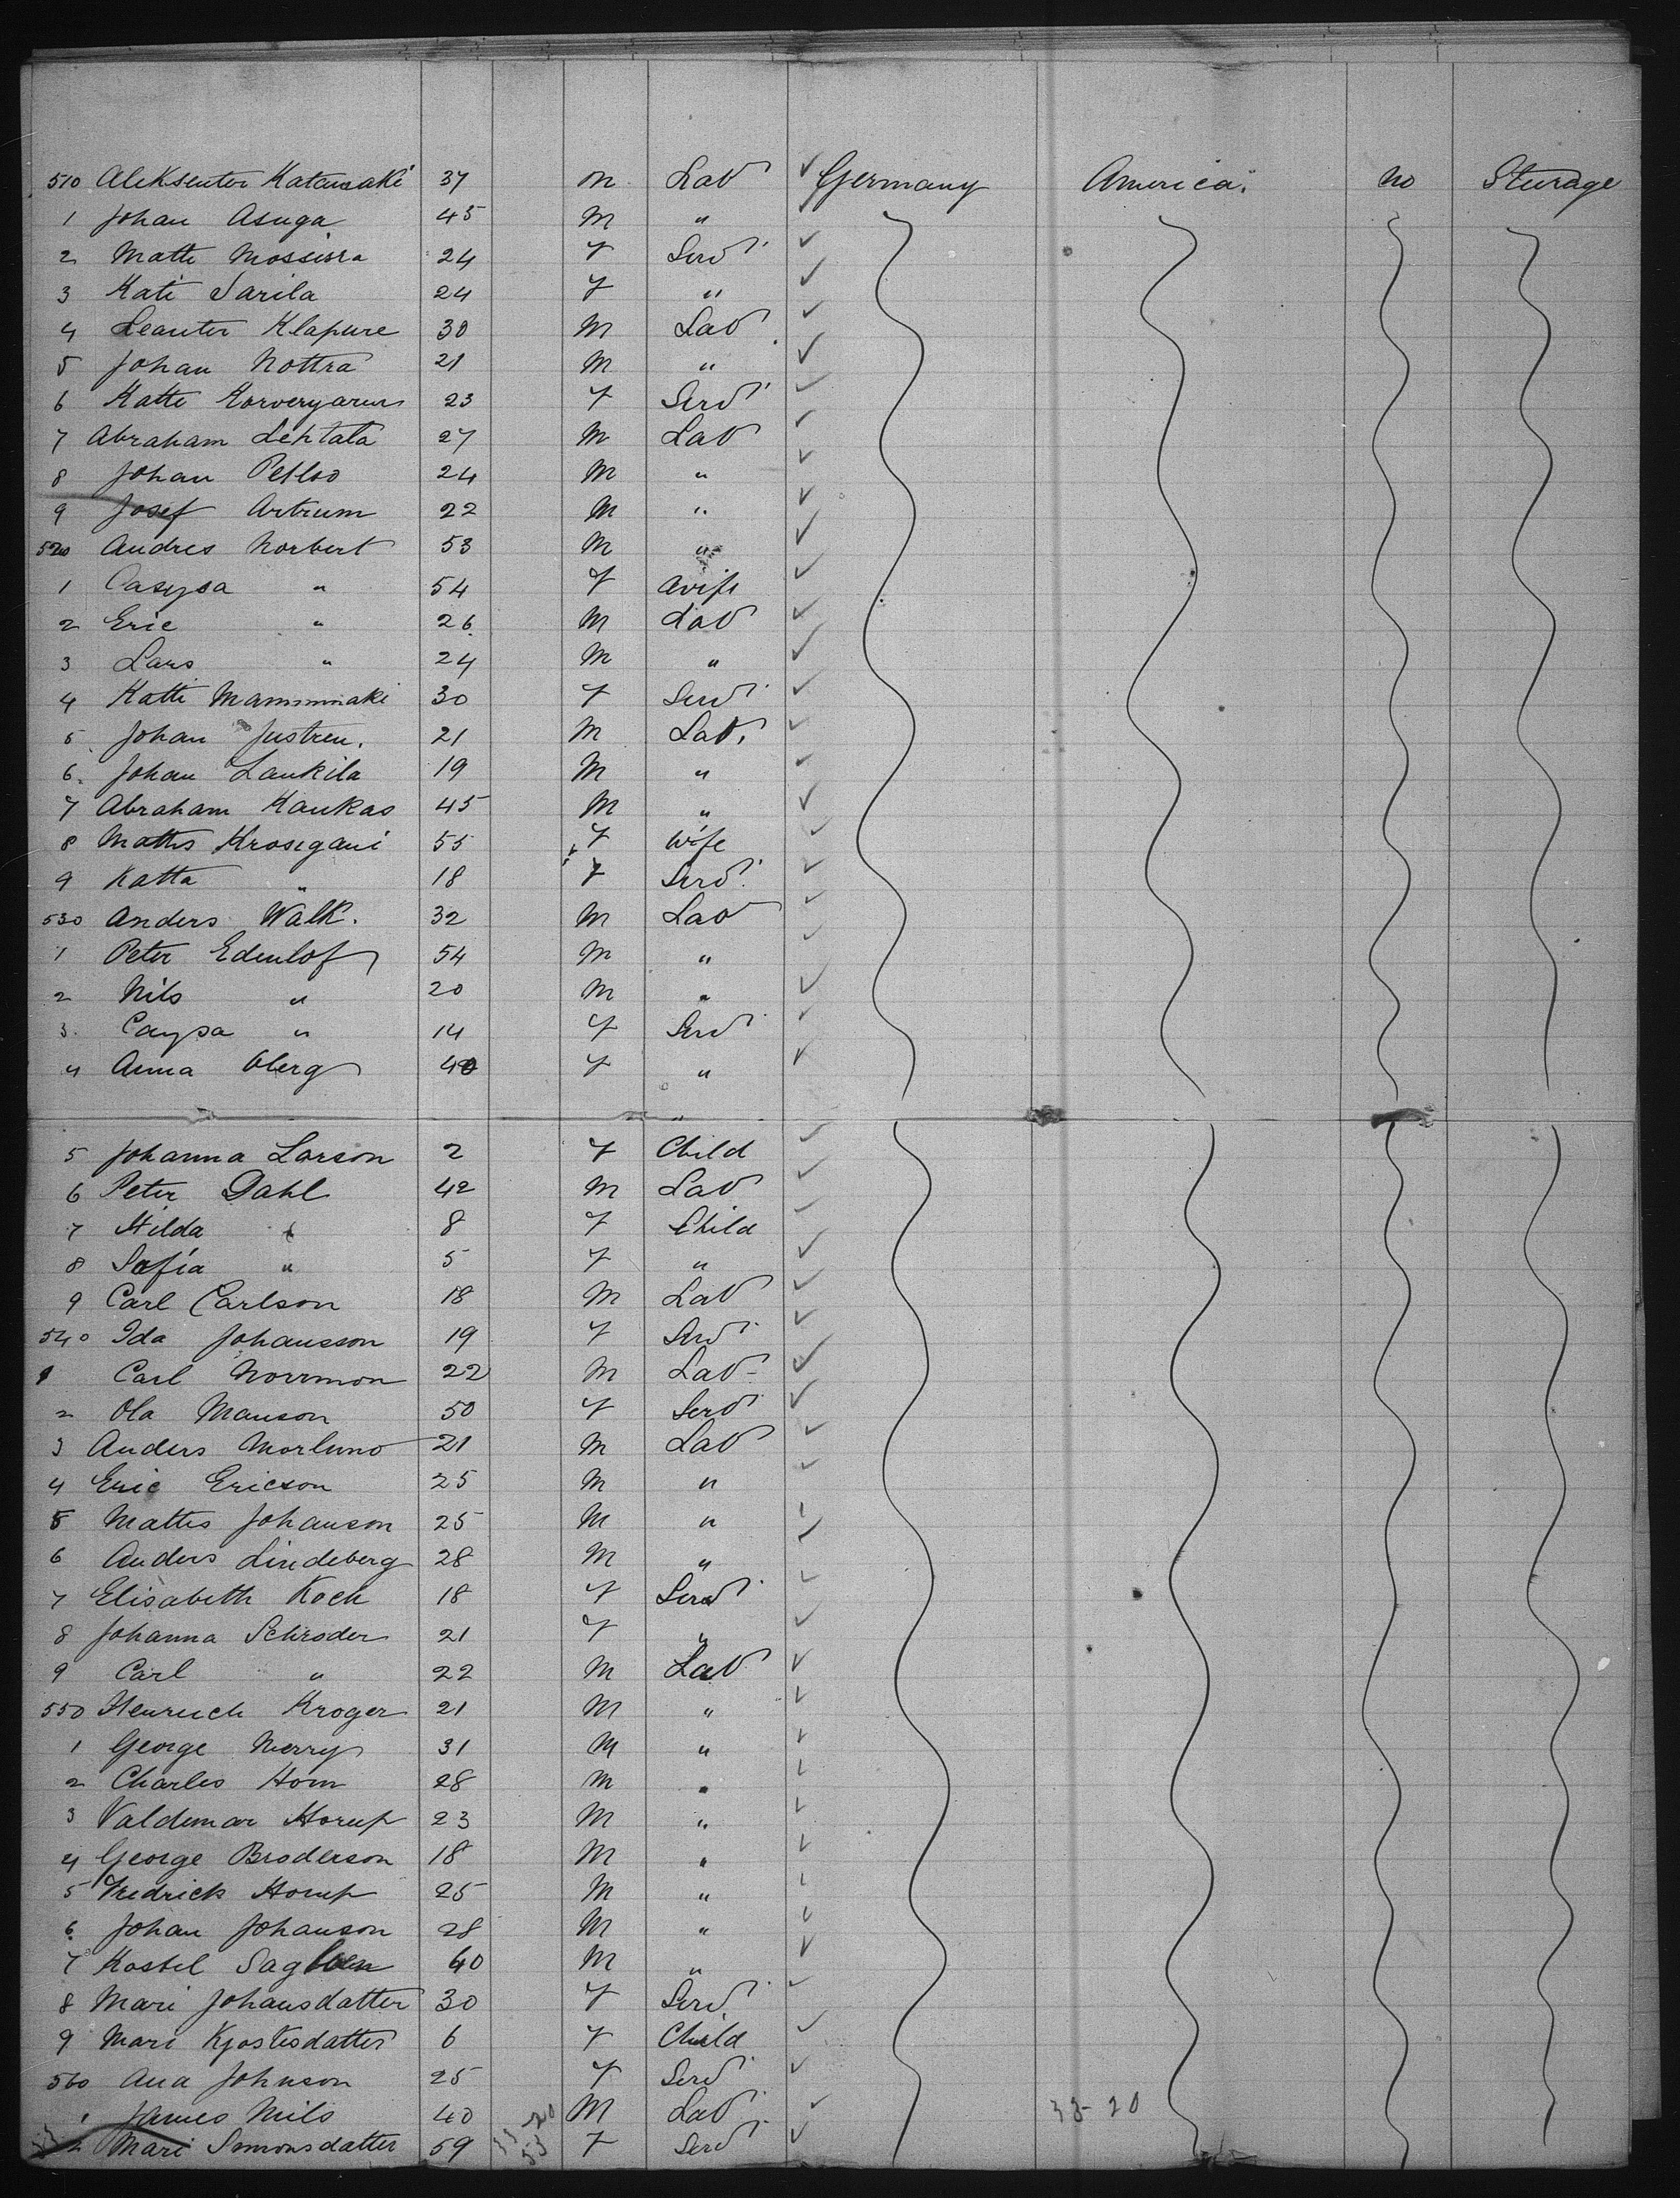 510 Aleksenter Katausaki 37 m Lab Germany America. no Sturage
1 Johan Asuga 45 M "
2 Matte Mossisra 24 F Serv
3 Kati Sarila 24 F "
4 Leanter Klapure 30 M Lab
5 Johan Nottra 21 M "
6 Katte 23 F Serv
7 Abraham Lehtala 27 M Lab
8 Johan 24 M "
9 Josef Artrum 22 M "
520 Andres Norbert 53 M "
1 Casysa " 54 F wife
2 Eric " 26 M Lab
3 Lars " 24 M "
4 Katti Mammmaki 30 F Serv
5 Johan Justren. 21 M Lab.
6. Johan Laukila 19 M "
7 Abraham Kaukas 45 M "
8 Mattis Krosigani 55 F wife
9 Katta " 18 F Serv.
530 Anders Walk. 32 M Lab
1 Peter Edenlof 54 M "
2 Nils " 20 M "
3. Caysa " 14 F Serv
4 Anna Oberg 40 F "
"
5 Johanna Larson 2 F Child
6 Peter Dahl 42 M Lab
7 Hilda " 8 F Child
8 Sofia " 5 F "
9 Carl Carlson 18 M Lab
540 Ida Johansson 19 F Serv
1 Carl Norrmon 22 M Lab-
2 Ola Manson 50 F Serv
3 Anders Morluno 21 M Lab
4 Eric Ericson 25 M "
5 Mattis Johanson 25 M "
6 Anders Lindeberg 28 M "
7 Elisabeth Koch 18 F Serv
8 Johanna Schroder 21 F "
9 Carl " 22 M Lab
550 Henruch Kroger 21 M "
1 George Merry 31 M "
2 Charles Horn 28 M "
3 Valdemar Horup 23 M "
4 George Broderson 18 M "
5 Fredrick Horup 25 M "
6. Johan Johanson 28 M "
7 Kostel 60 M "
8 Mari Johansdatter 30 F Serv
9 Mari Kjostisdatter 6 F Child
560 Ana Johnson 25 F Serv
1 James Nils 40 M Lab 33-20
2 Mari Simonsdatter 59 F Serv